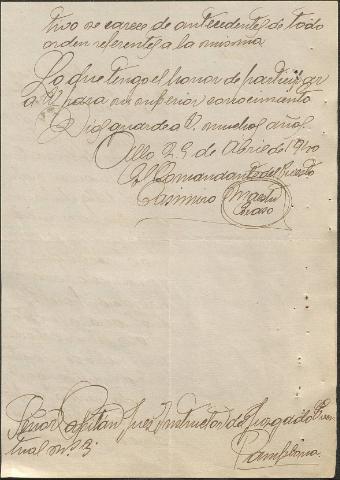 tivo se carece de antecedentes de todo
orden referentes a la misma.
Lo que tengo el honor de participar
a V. para su superior conocimiento
Dios guarde a V. muchos años.
Allo 29 de Abril de 1940
El Comandante del Puesto
Casimiro
Señor Capitán Juez Instructor del Juzgado Even
tual nº 3.
Pamplona.